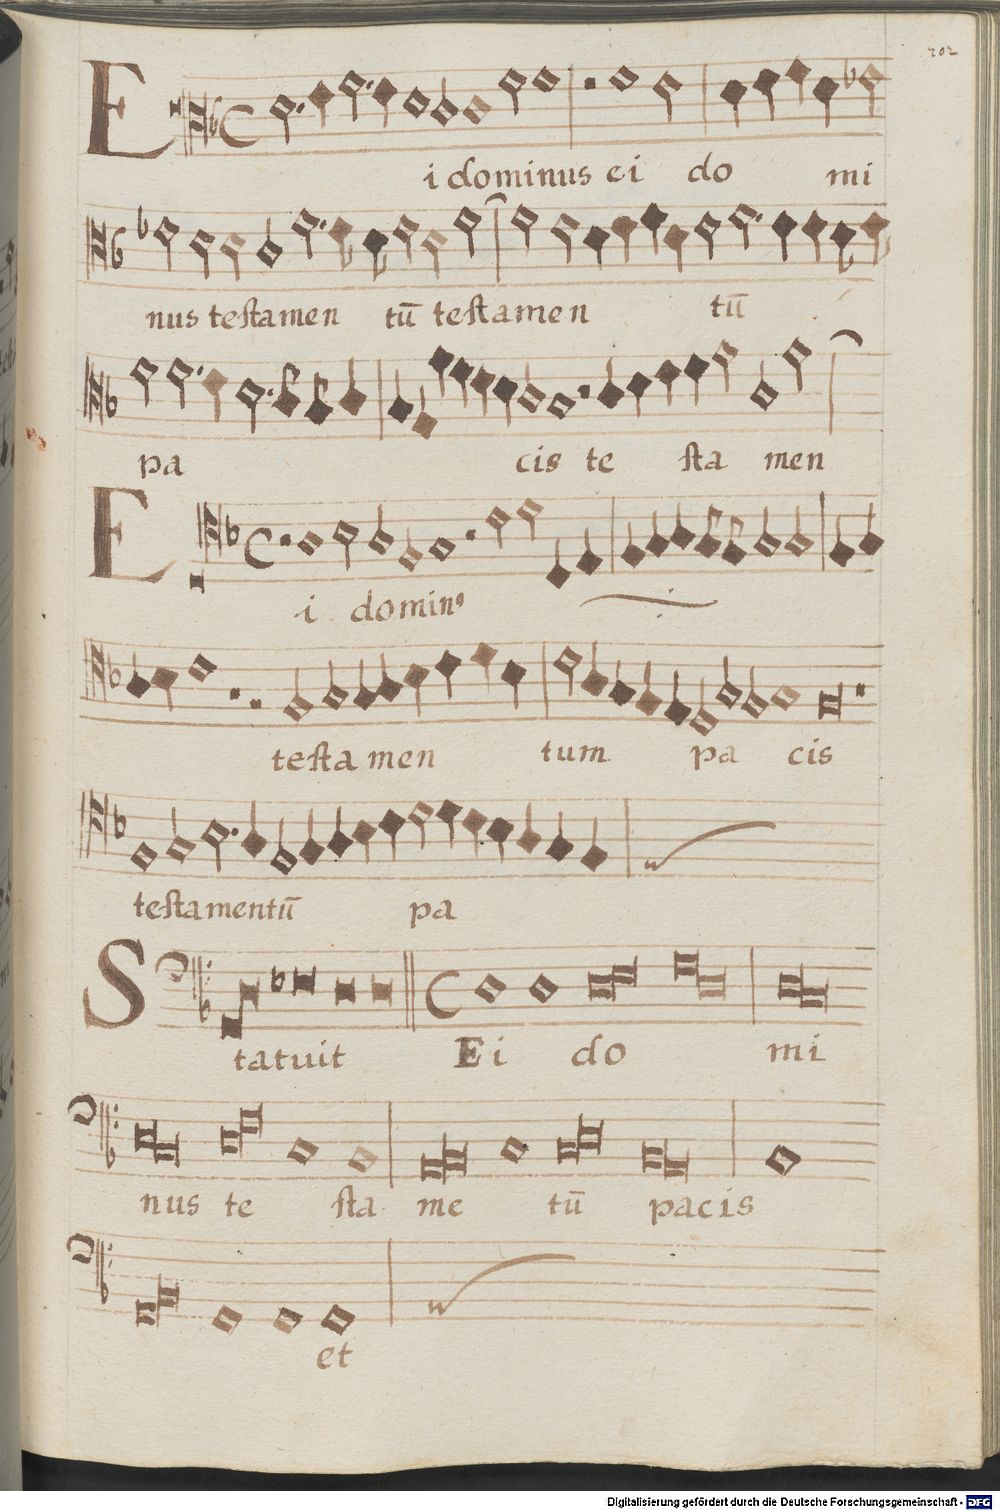 202
E
i dominus ei do mi
nus testamen tū testamen tū
pa cis te sta men
E
i domin⁹
testa men tum pa cis
testamentū pa
S
tatuit Ei do mi
nus te sta me tū pacis
et
Digitalisierung gefördert durch die Deutsche Forschungsgemeinschaft - DFG